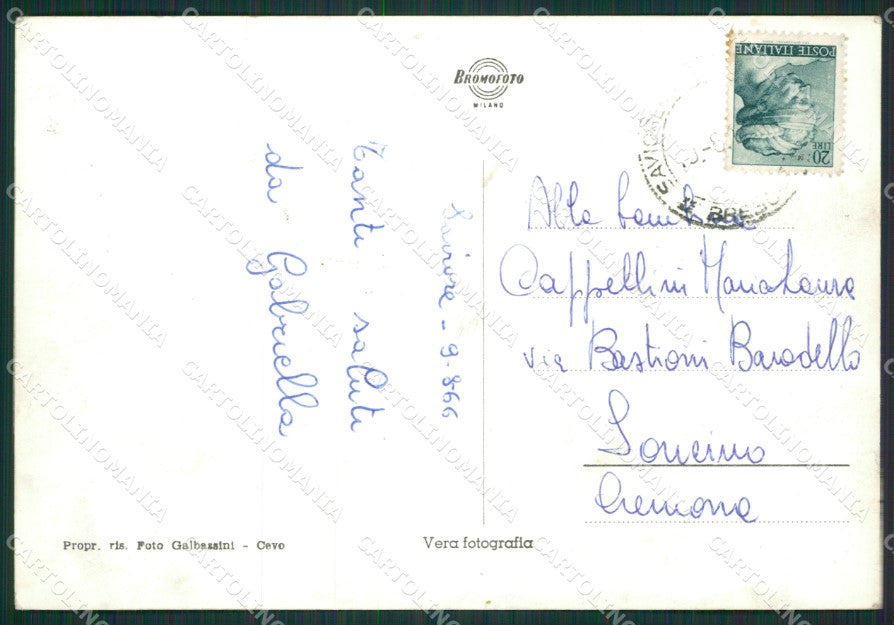 BROMOFOTO
MILANO
POSTE ITALIANE
LIRE 20
Saviore - 9-8-66
Tanti saluti
da Gabriella
Alla bambina
Cappellini Marialaura
via Bastioni Baradello
Soncino
Cremona
Propr. ris. Foto Galbassini - Cevo
Vera fotografia
CARTOLINOMANIA